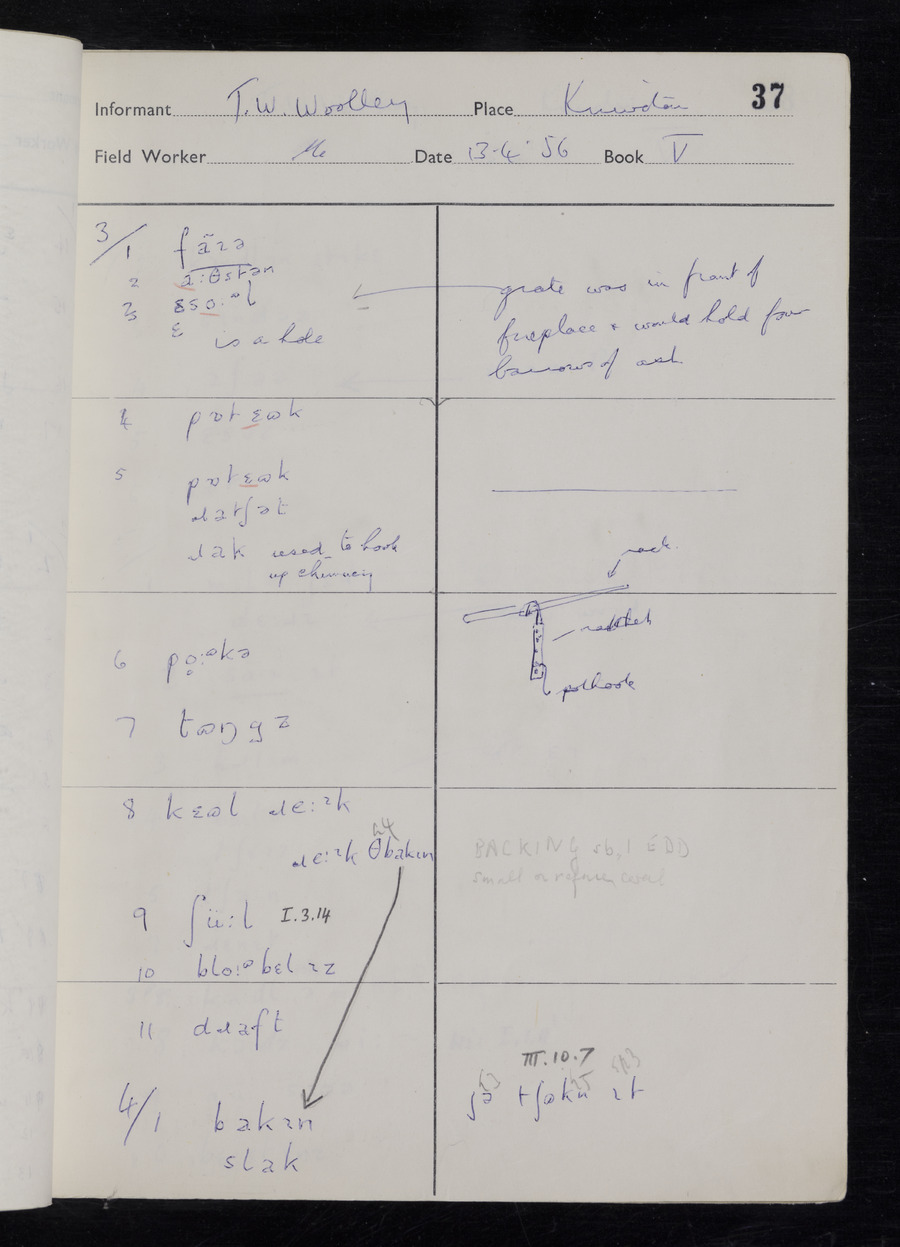 37
Informant T. W. Woolley Place Kniveton
Field Worker Me Date 13·4·56 Book V
3/1 faɪə
2 a:θstən
3 ɛso:əl
ɛ is a hole
grate was in front of
fireplace & would hold four
barrows of ash
4 pɒtɛʊk
5 pɒtɛʊk
ɹatʃət
ɹak used to hook
up chimney
rack
ratchet
pothook
6 po:əkə
7 tɒŋgz
8 kɛʊl ɹe:ɪk
ɹe:ɪk θbakɪn
BACKING sb, 1 EDD
small or refuse coal
9 ʃü:l I.3.14
10 blo:əbɛlɪz
11 dɹaft
III.10.7
4/1 bakɪn
slak